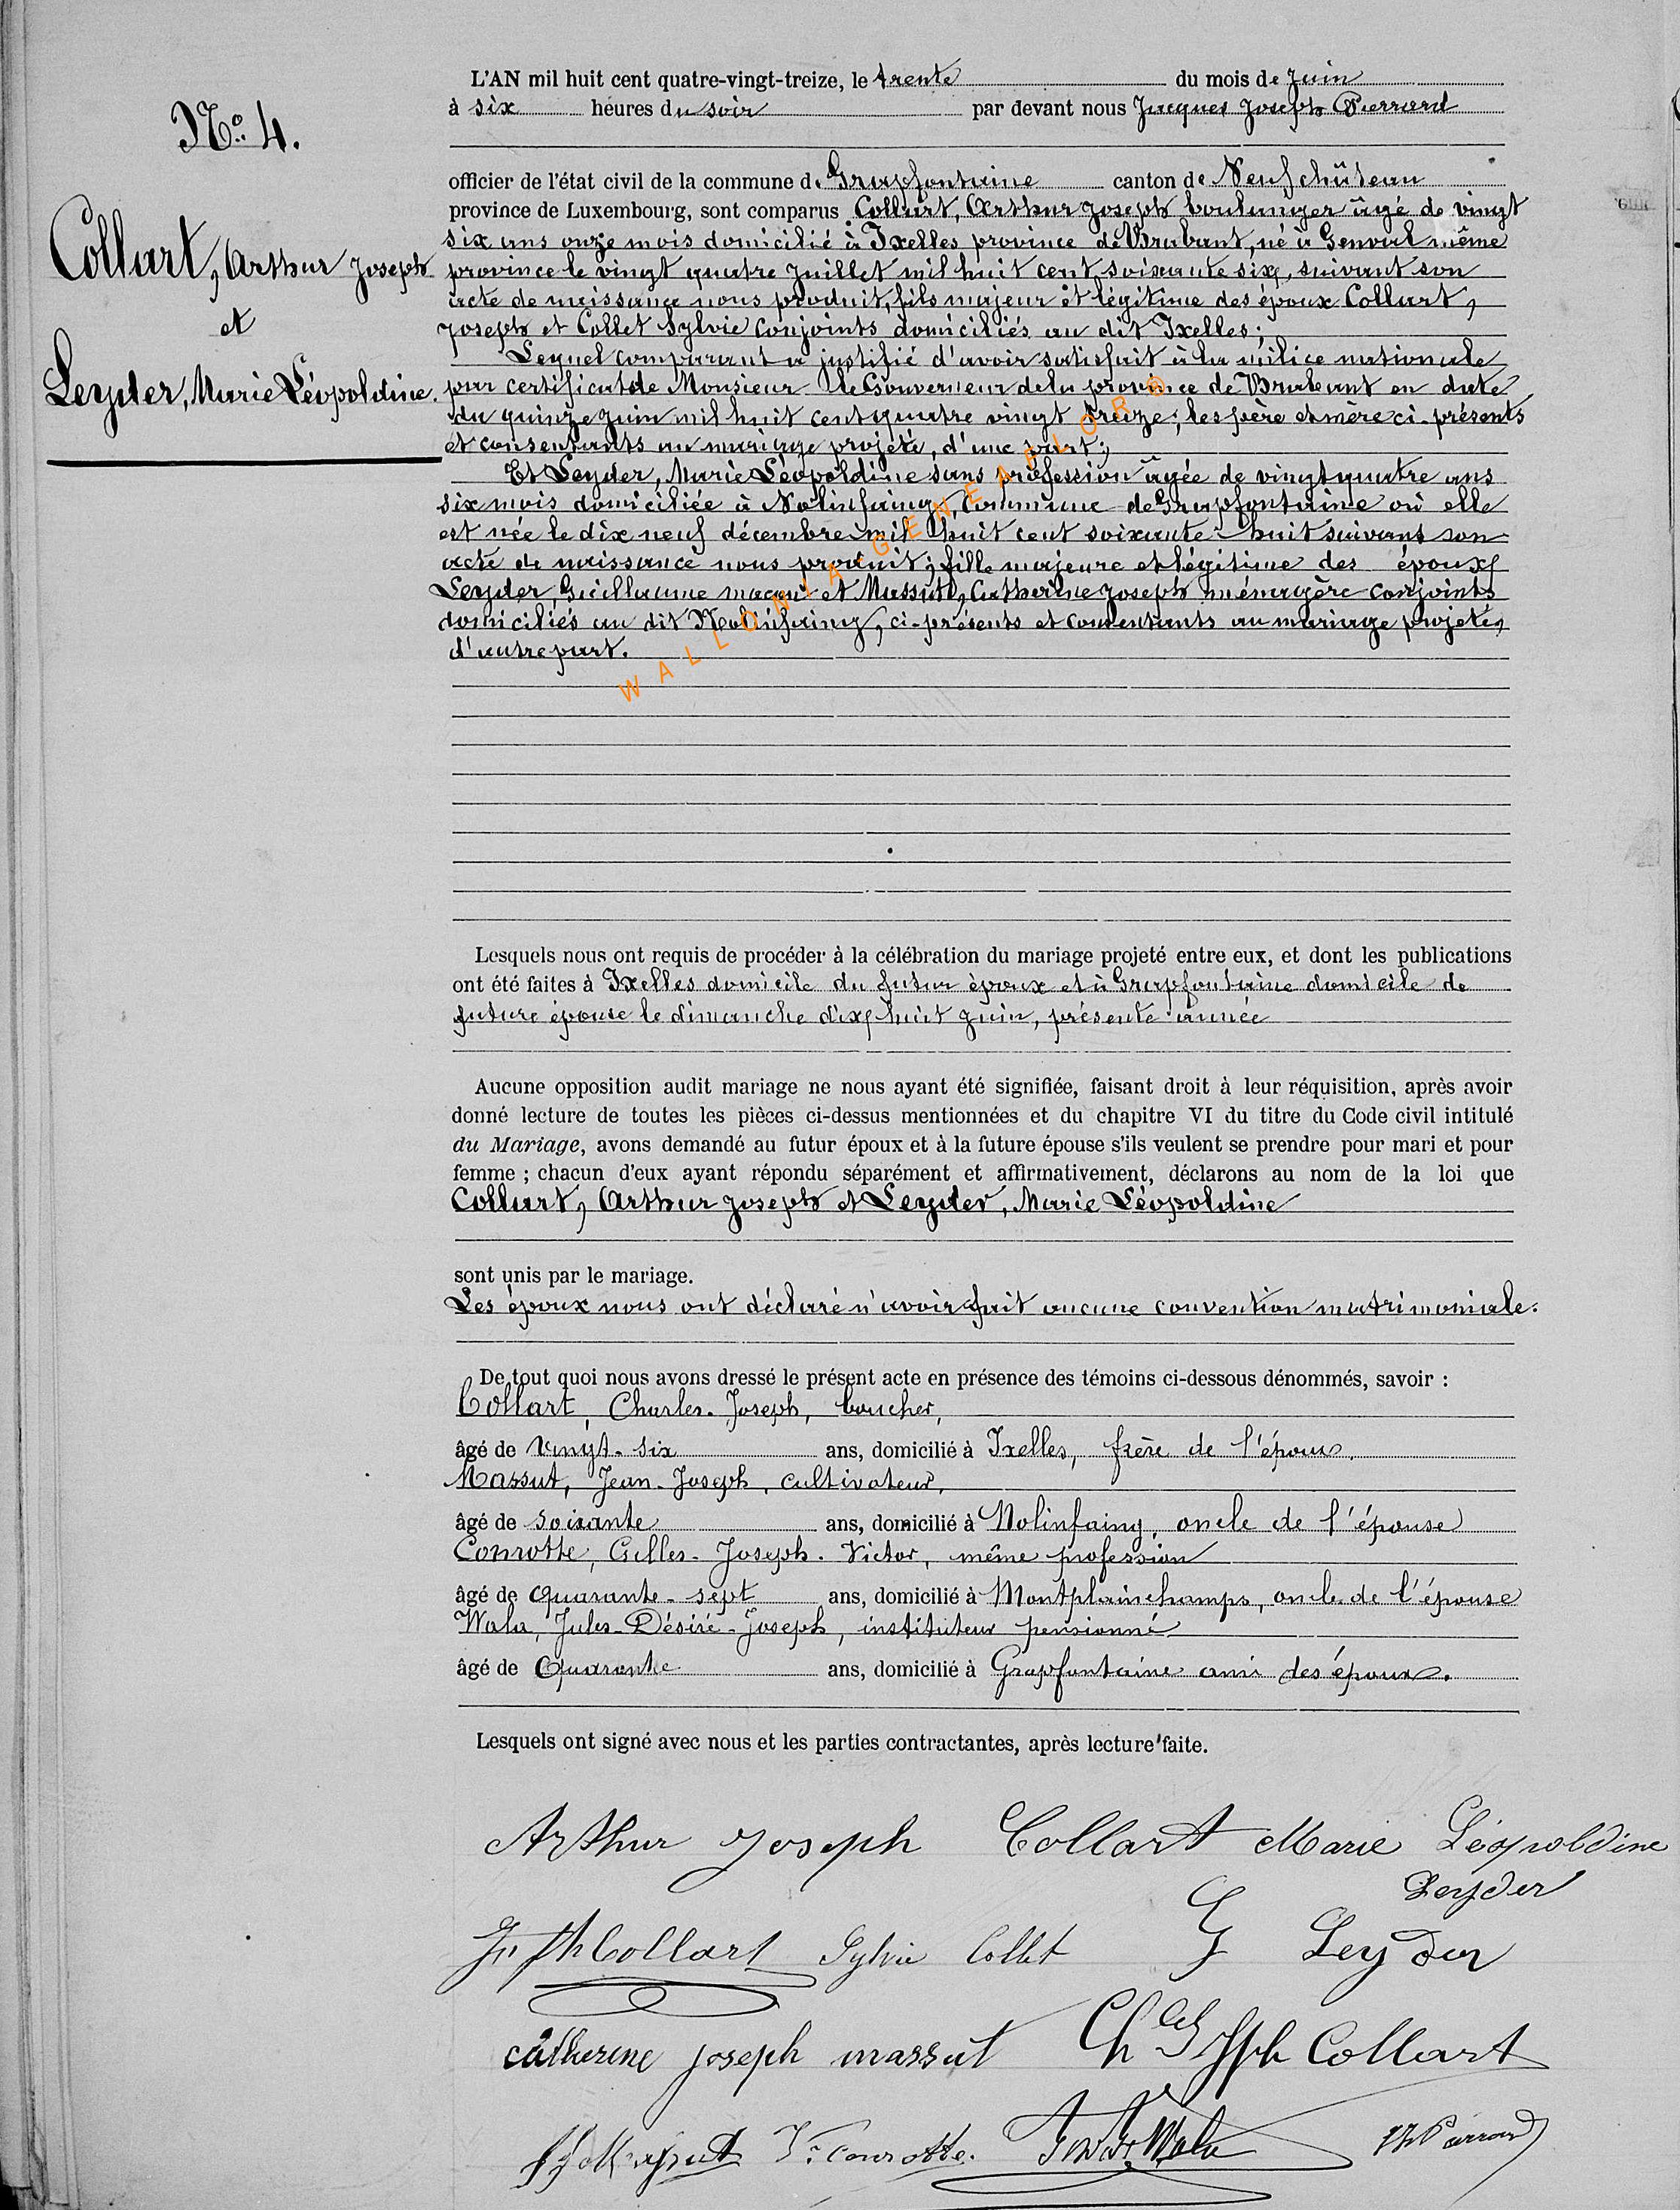 No. 4.
Collart, Arthur Joseph
et
Leyder, Marie Léopoldine.
L'AN mil huit cent quatre-vingt-treize, le trente du mois de Juin
à six heures du soir par devant nous Jacques Joseph Pierrard
officier de l'état civil de la commune de Grapfontaine canton de Neufchâteau
province de Luxembourg, sont comparus Collart, Arthur Joseph boulanger âgé de vingt
six ans onze mois domicilié à Ixelles province de Brabant, né à Genval même
province le vingt quatre Juillet mil huit cent soixante six, suivant son
acte de naissance nous produit, fils majeur et légitime des époux Collart,
Joseph et Collet Sylvie conjoints domiciliés au dit Ixelles;
Lequel comparant a justifié d'avoir satisfait à la milice nationale
par certificat de Monsieur le Gouverneur de la province de Brabant en date
du quinze juin mil huit cent quatre vingt treize; les père et mère ci-présents
et consentants au mariage projeté, d'une part;
Et Leyder, Marie Léopoldine sans profession âgée de vingt quatre ans
six mois domiciliée à Nolinfaing, commune de Grapfontaine où elle
est née le dix neuf décembre mil huit cent soixante-huit suivant son
acte de naissance nous produit; fille majeure et légitime des époux
Leyder, Guillaume maçon et Massut, Catherine Joseph ménagère conjoints
domiciliés au dit Nolinfaing, ci-présents et consentants au mariage projeté,
d'autre part.
WALLONIA-GENEAFLOR®
Lesquels nous ont requis de procéder à la célébration du mariage projeté entre eux, et dont les publications
ont été faites à Ixelles domicile du futur époux et à Grapfontaine domicile de
future épouse le dimanche dix huit juin, présente année
Aucune opposition audit mariage ne nous ayant été signifiée, faisant droit à leur réquisition, après avoir
donné lecture de toutes les pièces ci-dessus mentionnées et du chapitre VI du titre du Code civil intitulé
du Mariage, avons demandé au futur époux et à la future épouse s'ils veulent se prendre pour mari et pour
femme ; chacun d'eux ayant répondu séparément et affirmativement, déclarons au nom de la loi que
Collart, Arthur Joseph et Leyder, Marie Léopoldine
sont unis par le mariage.
Les époux nous ont déclaré n'avoir fait aucune convention matrimoniale.
De tout quoi nous avons dressé le présent acte en présence des témoins ci-dessous dénommés, savoir :
Collart, Charles-Joseph, boucher,
âgé de vingt-six ans, domicilié à Ixelles, frère de l'époux.
Massut, Jean-Joseph, cultivateur,
âgé de soixante ans, domicilié à Nolinfaing, oncle de l'épouse
Conrotte, Gilles-Joseph-Victor, même profession
âgé de quarante-sept ans, domicilié à Montplainchamps, oncle de l'épouse
Wala, Jules-Désiré-Joseph, instituteur pensionné
âgé de Quarante ans, domicilié à Grapfontaine ami des époux.
Lesquels ont signé avec nous et les parties contractantes, après lecture faite.
Arthur Joseph Collart Marie Léopoldine
Leyder
Jph Collart Sylvie Collet G Leyder
catherine joseph massut Chles Jph Collart
JJ Massut Vr Conrotte. Wala Pierrard